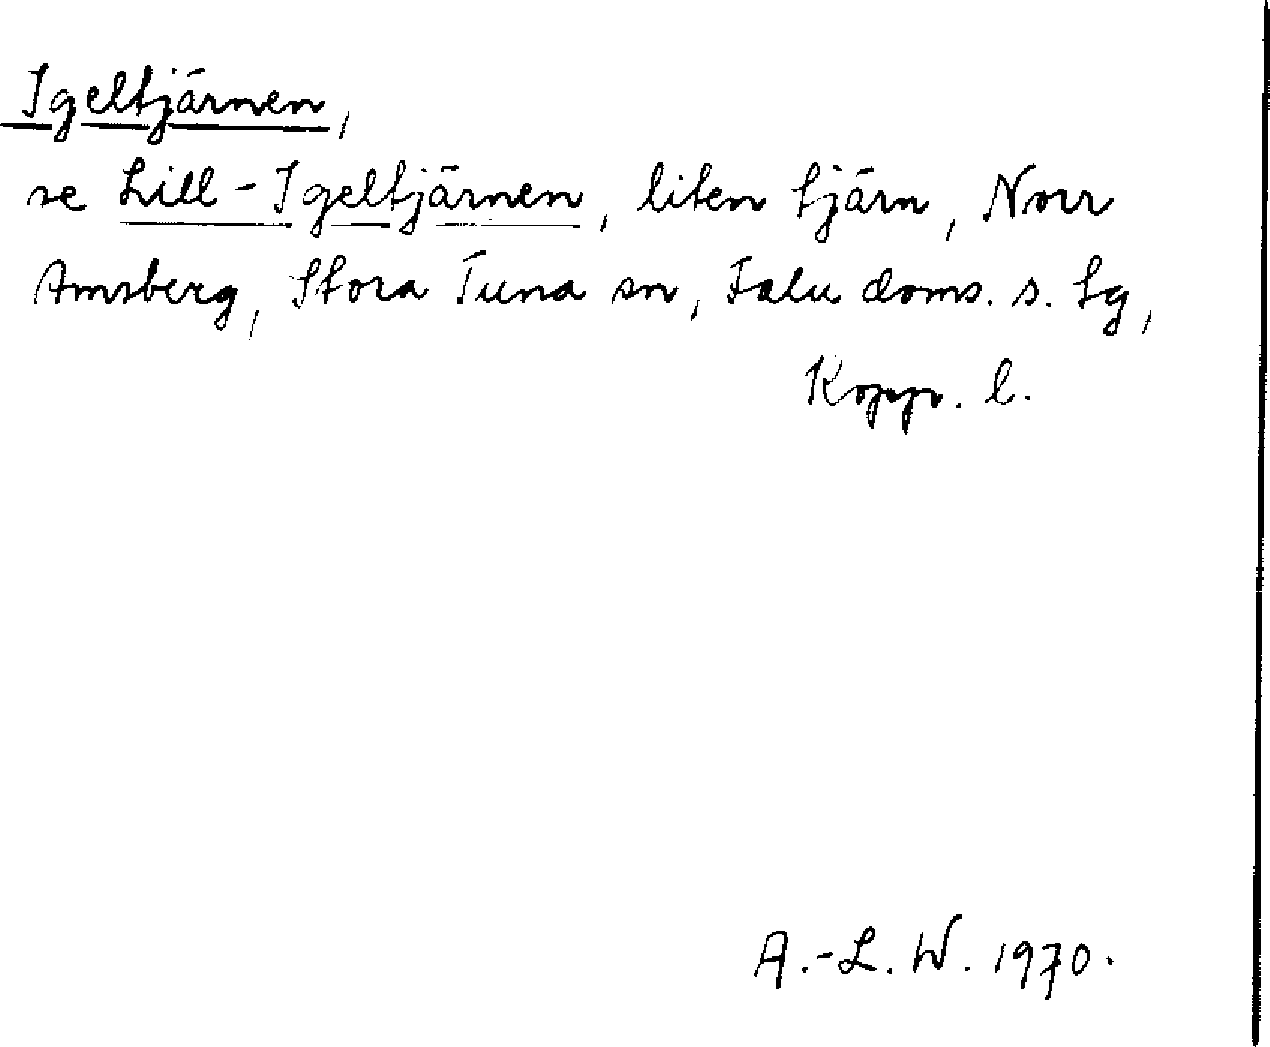 Igeltjärnen,
se Lill-Igeltjärnen, liten tjärn, Norr
Amsberg, Stora Tuna sn, Falu doms. s. tg,
Kopp. l.
A.-L. W. 1970.